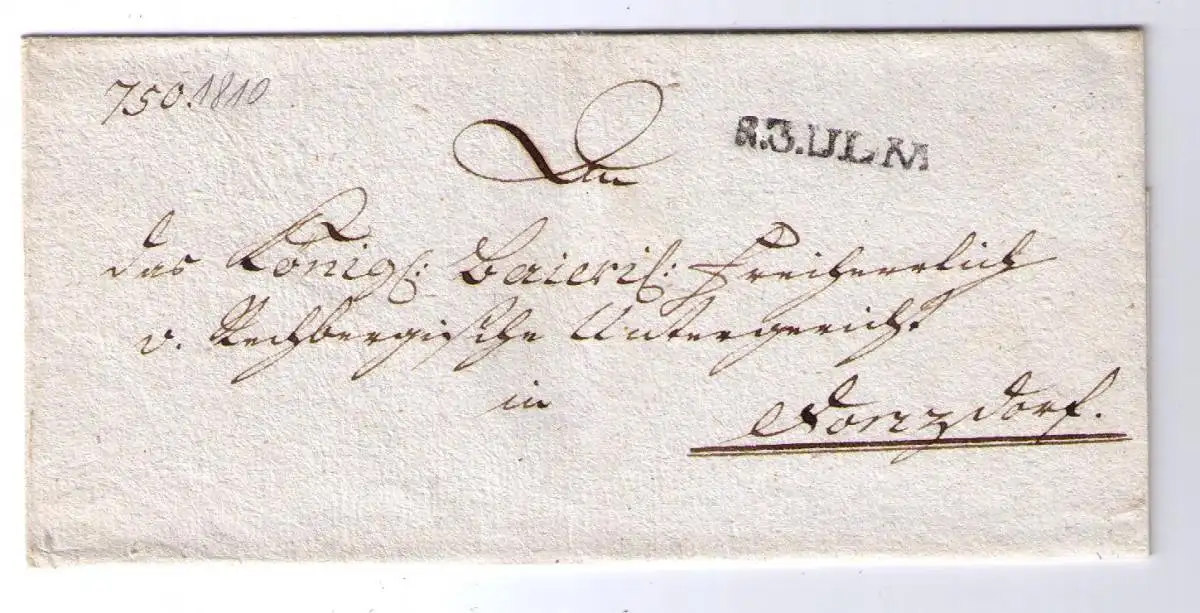 750. 1810
R.3.ULM
An
das Königl: Baieris: Freiherrlich
v. Rechbergische Untergericht
in
Donzdorf.